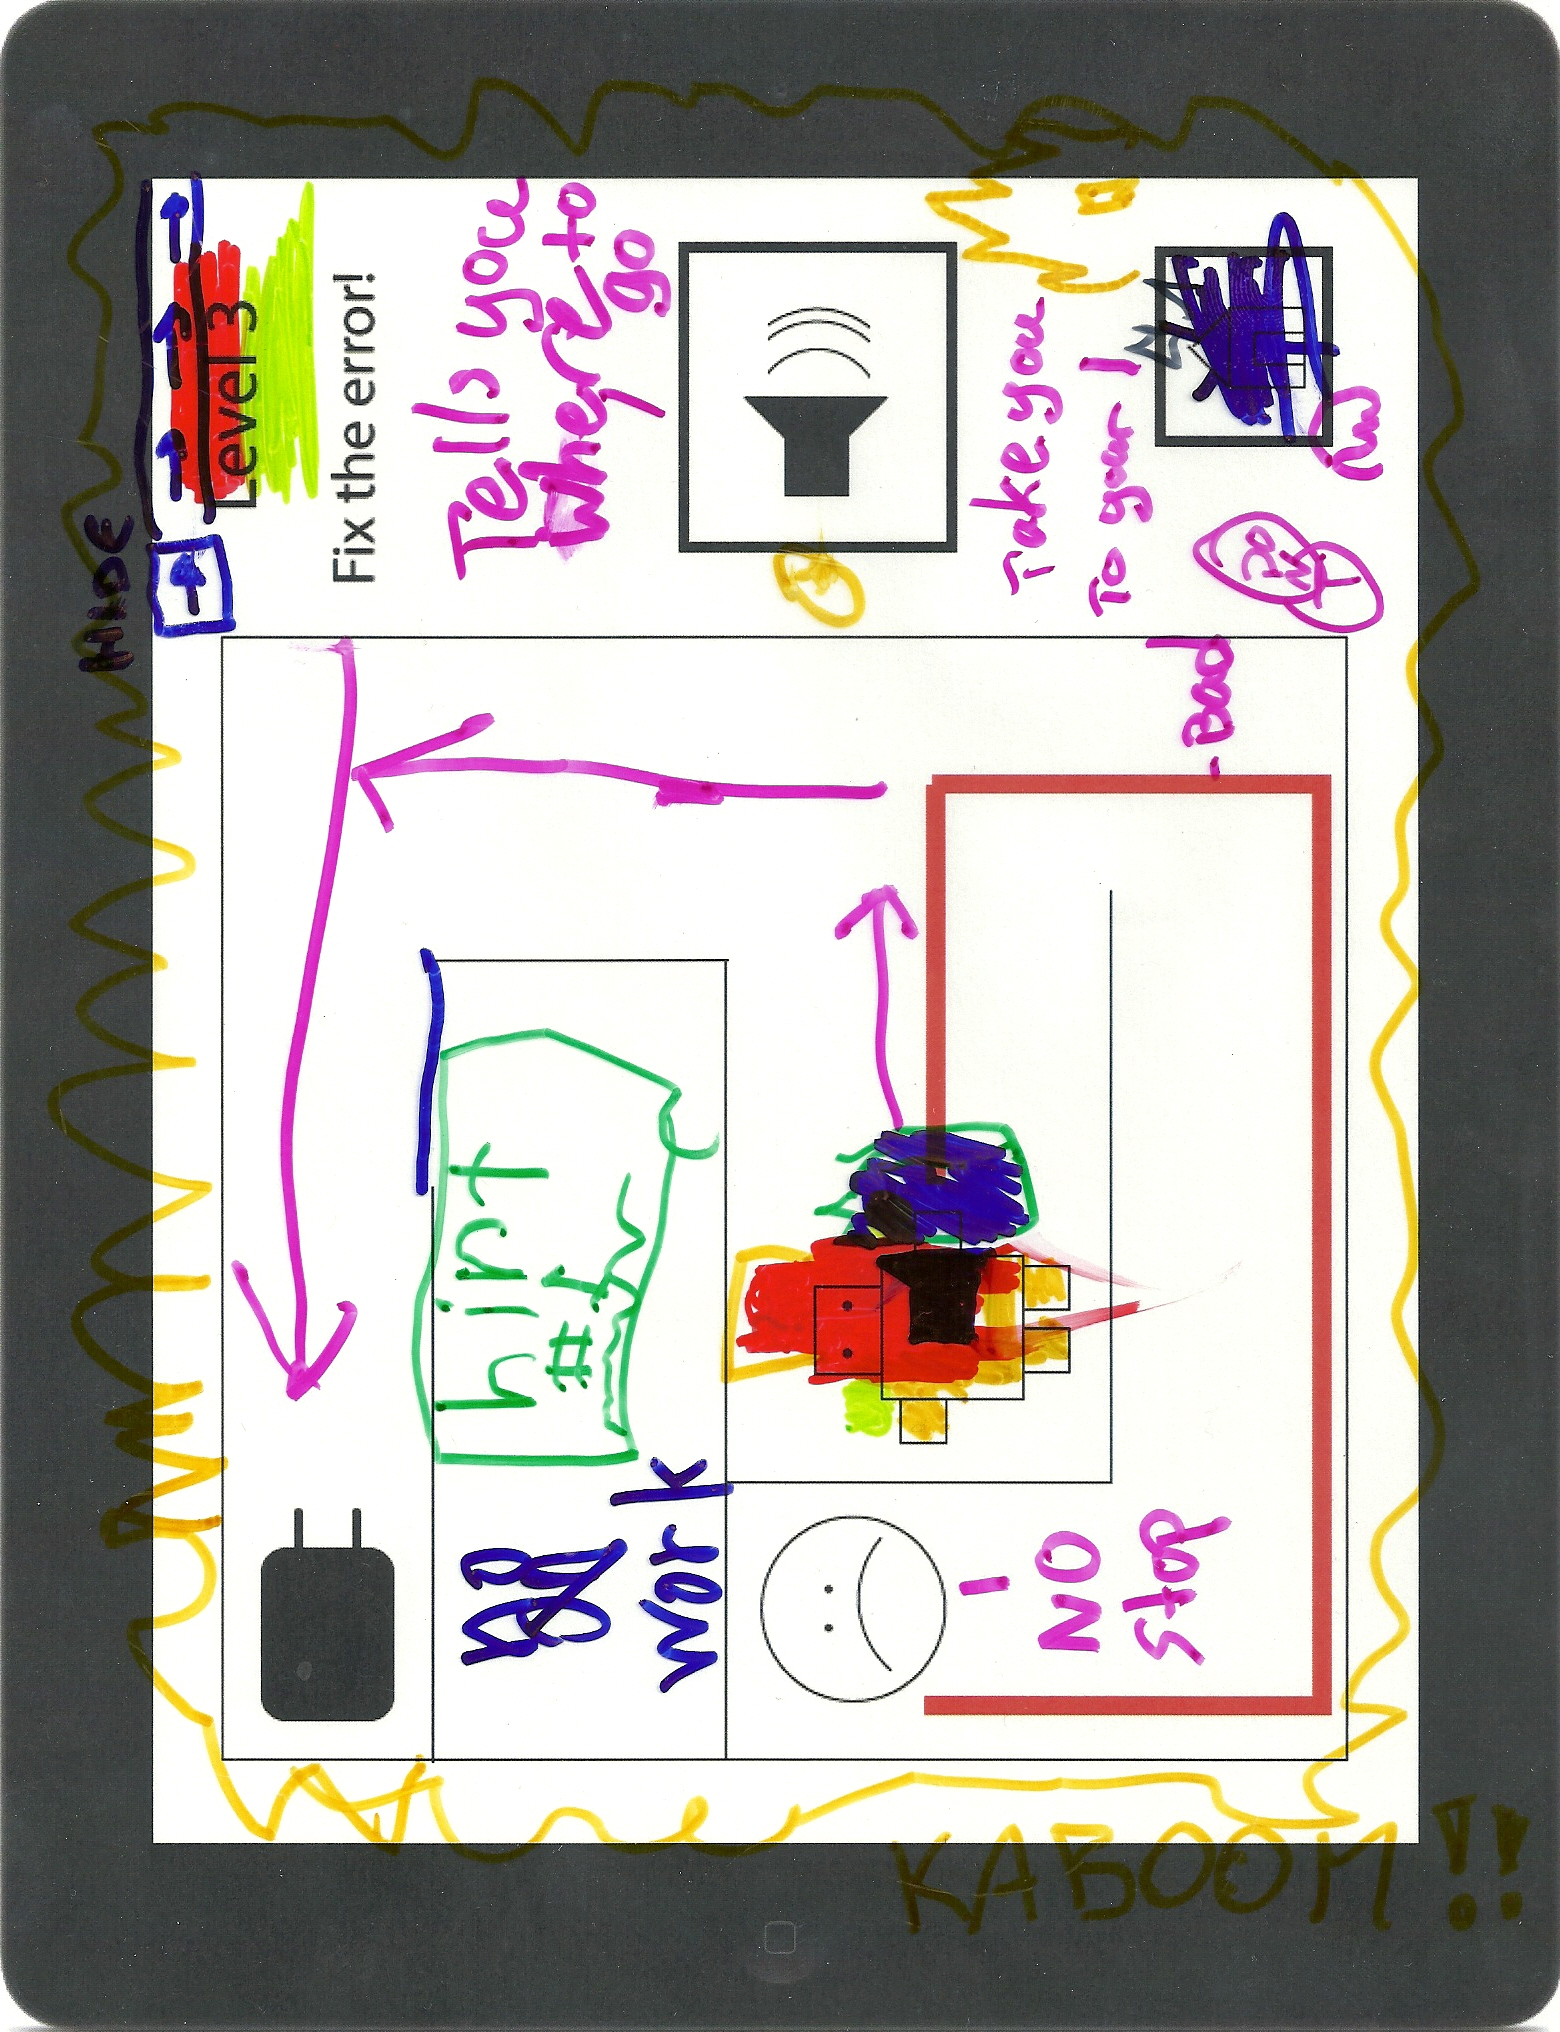 HIDE
Level 3
Fix the error!
Tells you
where to
go
Take you
To your
Bad
work
NO
Stop
KABOOM!!